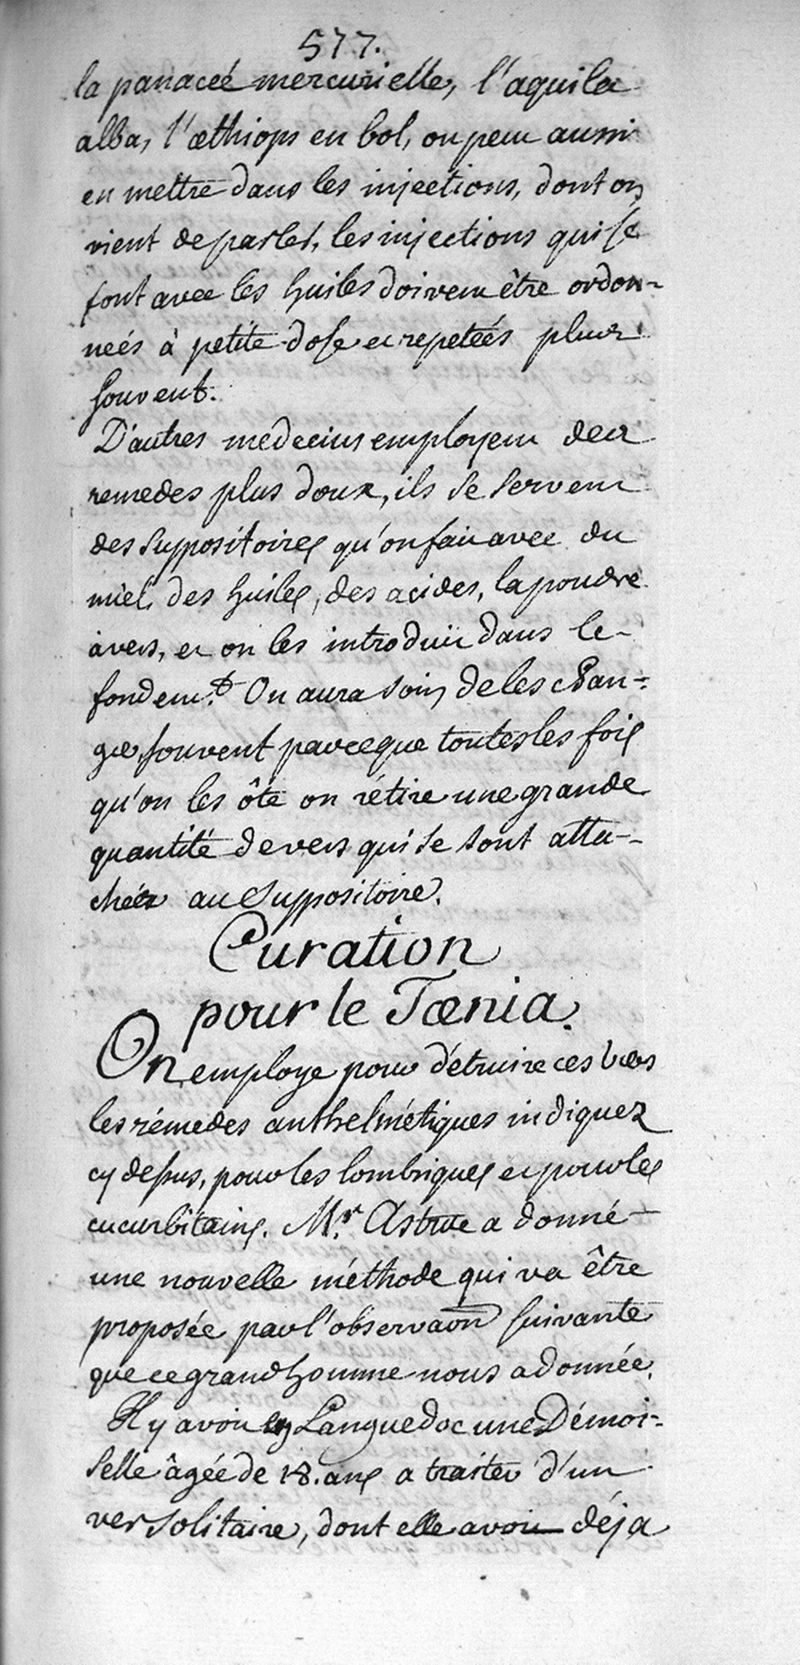 577.
la panaceé mercurielle, l'aquila
alba, l'œthiops en bol, on peut aussi
en mettre dans les injections, dont on
vient de parler, les injections qui se
font avec les huiles doivent être ordon-
neés à petite dose et repeteés plus
souvent.
D'autres medecins employent des
remedes plus doux, ils se servent
des suppositoires qu'on fait avec du
miel, des huiles, des acides, la poudre
à vers, et on les introduit dans le
fondem.t On aura soin de les chan-
ger souvent parceque toutes les fois
qu'on les ôte on rétire une grande
quantité de vers qui se sont atta-
chés au suppositoire.
Curation
pour le Tœnia.
On employe pour détruire ces vers
les rémedes anthelmétiques indiquez
cy dessus, pour les lombriques et pour les
cucurbitains. M.r Astruc a donné
une nouvelle méthode qui va être
proposée par l'observaon suivante
que ce grand homme nous a donnée.
Il y avoit en Languedoc une Démoi-
selle âgée de 18. ans a traiter d'un
ver solitaire, dont elle avoit déja